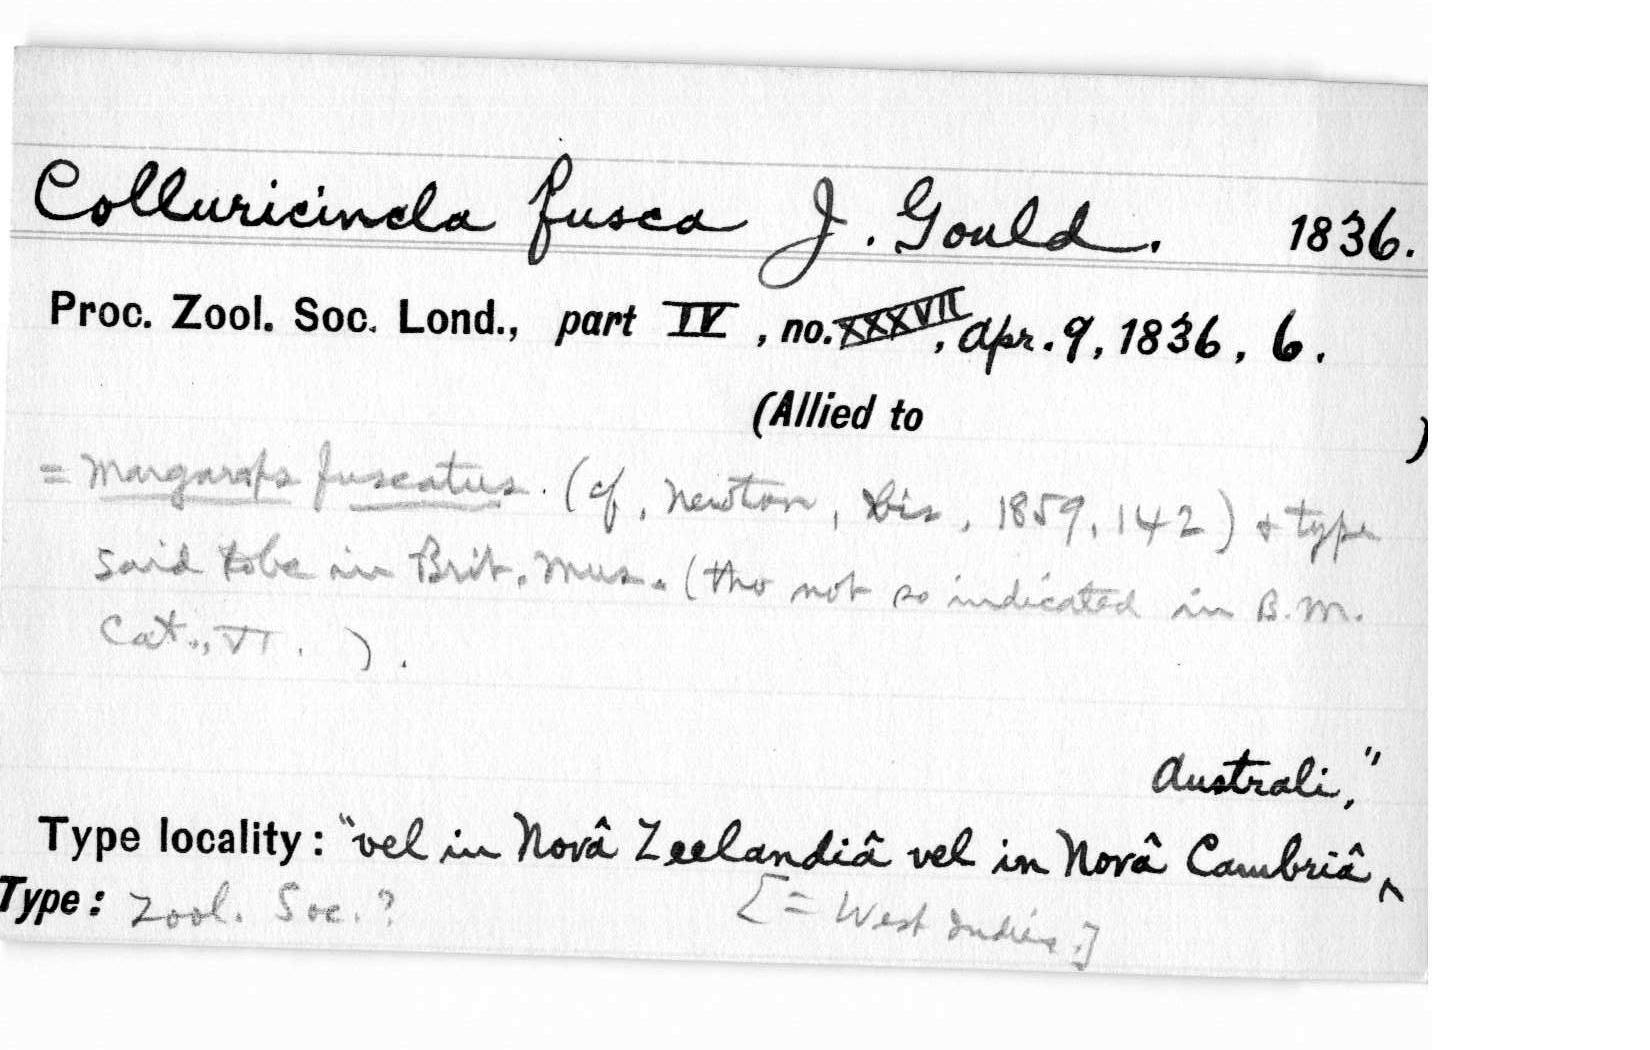 Colluricincla fusca J. Gould. 1836.
Proc. Zool. Soc. Lond., part IV, no. XXXVII, Apr. 9, 1836, 6.
(Allied to )
= Margarops fuscatus. (cf, Newton, Ibis, 1859, 142) & type
said to be in Brit. Mus. (tho not so indicated in B.M.
Cat., VI. ).
Australi,"
Type locality: "vel in Novâ Zeelandiâ vel in Novâ Cambriâ ^
Type: Zool. Soc.? [= West Indies.]